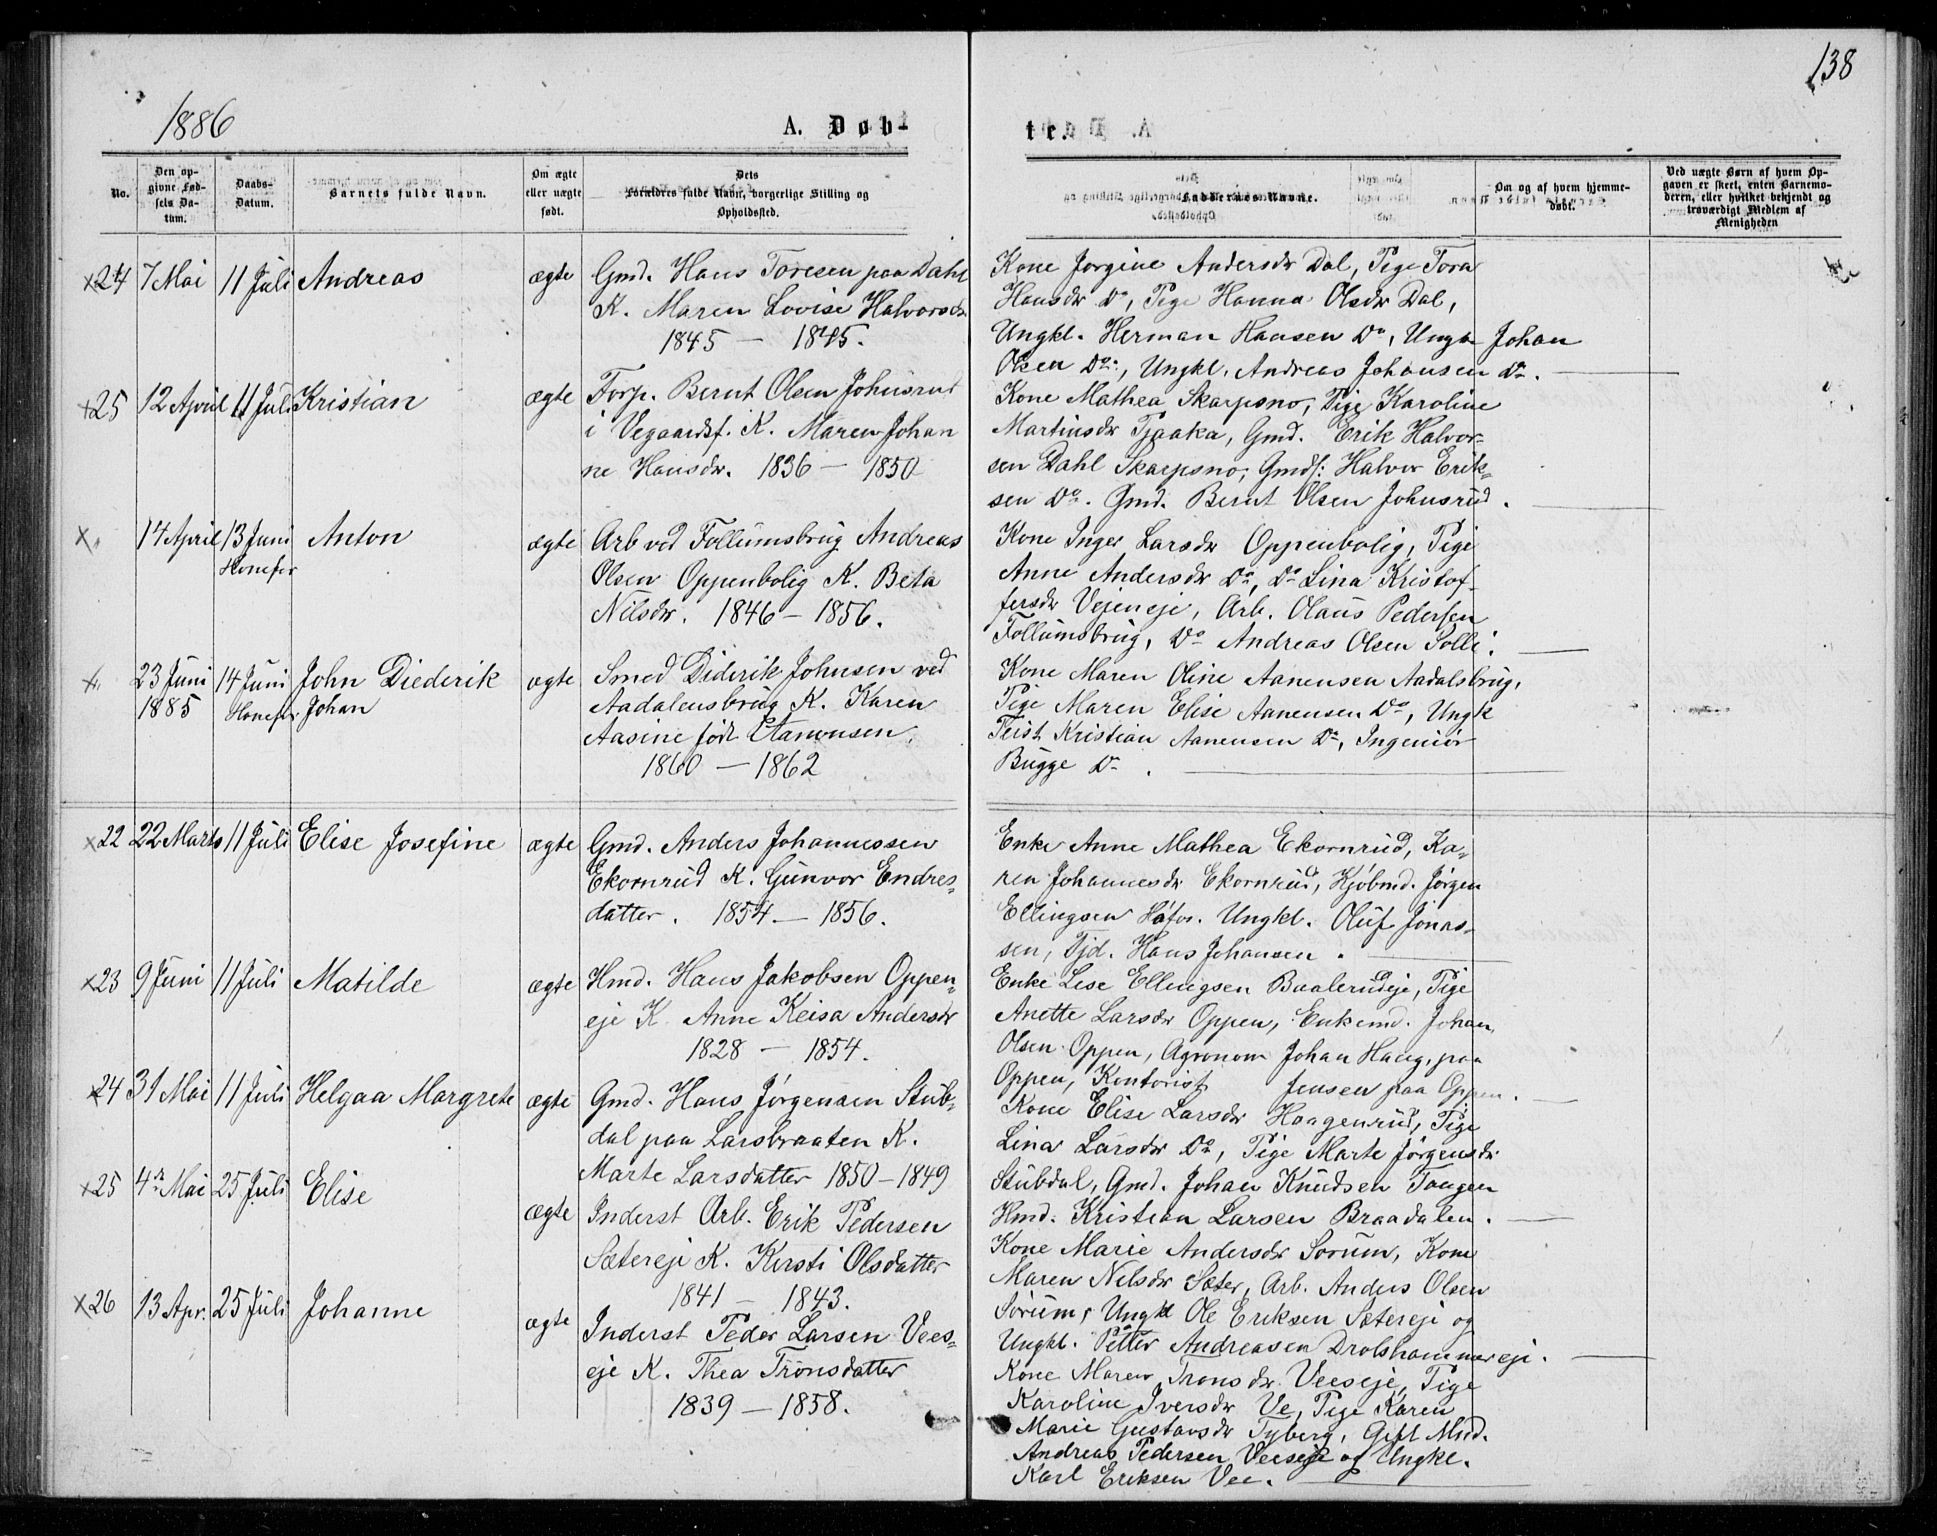 138
1886
A. Døb-
te.
No.
Den op-
givne Fød-
sels Da-
tum.
Daabs-
Datum.
Barnets fulde Navn.
Om ægte
eller uægte
født.
Dets
Forældres fulde Navn, borgerlige Stilling og
Opholdssted.
Faddernes Navne.
Om og af hvem hjemme-
døbt.
Ved uægte Børn af hvem Op-
gaven er skeet, enten Barnemo-
deren, eller hvilket bekjendt og
troværdigt Medlem af
Menigheden
x24 7 Mai 11 Juli Andreas ægte Gmd. Hans Toresen paa Dahl
K. Maren Lovise Halvorsdr.
1845 — 1845.
Kone Jørgine Andersdr Dal, Pige Tora
Hansdr Do, Pige Hanna Olsdr Dal,
Ungkl. Herman Hansen Do, Ungk Johan
Olsen Do:, Ungkl. Andreas Johansen Do.
x25 12 April 11 Juli Kristian ægte Forp. Bernt Olsen Johnsrud
i Vegaardsf. K. Maren Johan
ne Hansdr. 1836 — 1850
Kone Mathea Skarpsno, Pige Karoline
Martinsdr Tjaaka, Gmd. Erik Halvor-
sen Dahl Skarpsno, Gmds: Halvor Erik-
sen Do. Gmd. Bernt Olsen Johnsrud.
x„ 14 April 13 Juni Anton ægte Arb ved Follumsbrug Andreas
Hønefos
Olsen Oppenbolig K. Beta
Nilsdr. 1846 — 1856.
Kone Inger Larsdr Oppenbolig, Pige
Anne Andersdr Do, Do Lina Kristof-
fersdr Vejeneje, Arb. Olaus Pedersen
Follumsbrug, Do Andreas Olsen Solli.
x„ 23 Juni 14 Juni John Diederik ægte Smed Diderik Johnsen ved
1885 Hønefos Johan
Aadalensbrug K. Karen
Aasine født Aanonsen.
1860 — 1862
Kone Maren Oline Aanensen Aadalsbrug,
Pige Maren Elise Aanensen Do, Ungk
Teist Kristian Aanensen Do, Ingeniør
Bugge Do.
x22 22 Marts 11 Juli Elise Josefine ægte Gmd. Anders Johannessen
Ekornrud K. Gunvor Endres-
datter. 1854 — 1856.
Enke Anne Mathea Ekornrud, Ka-
ren Johannesdr Ekornrud, Kjøbmd. Jørgen
Ellingsen Høfos. Ungkl. Oluf Jonas-
sen, Tjd. Hans Johansen.
x23 9 Juni 11 Juli Matilde ægte Hmd. Hans Jakobsen Oppen-
eje K Anne Keisa Andersdr
1828 — 1854.
Enke Lise Ellingsen Baalerudeje, Pige
Anette Larsdr Oppen, Enkemd. Johan
Olsen Oppen, Agronom Johan Haug, paa
Oppen, Kontorist Jensen paa Oppen.
x24 31 Mai 11 Juli Helgaa Margrete ægte Gmd. Hans Jørgensen Stub-
dal paa Larsbraaten K.
Marte Larsdatter 1850 — 1849
Kone Elise Larsdr Haagenrud, Pige
Lina Larsdr Do, Pige Marte Jørgensdr
Stubdal, Gmd. Johan Knudsen Tangen
Hmd. Kristian Larsen Braadalen.
x25 4de Mai 25 Juli Elise ægte Inderst Arb. Erik Pedersen
Sætereje K. Kersti Olsdatter
1841 — 1843.
Kone Marie Andersdr Sørum, Kone
Maren Nilsdr Sæter, Arb. Anders Olsen
Sørum, Ungkl Ole Eriksen Sætereje og
Ungkl. Petter Andreasen Drolshammereje.
x26 13 Apr. 25 Juli Johanne ægte Inderst Peder Larsen Vees-
eje K. Thea Trønsdatter
1839 — 1858.
Kone Maren Tronsdr Veeseje, Pige
Karoline Iversdr Ve, Pige Karen
Marie Gustavsdr Tyberg, Gift Md.
Andreas Pedersen Veeseje og Ungkl.
Karl Eriksen Vee.